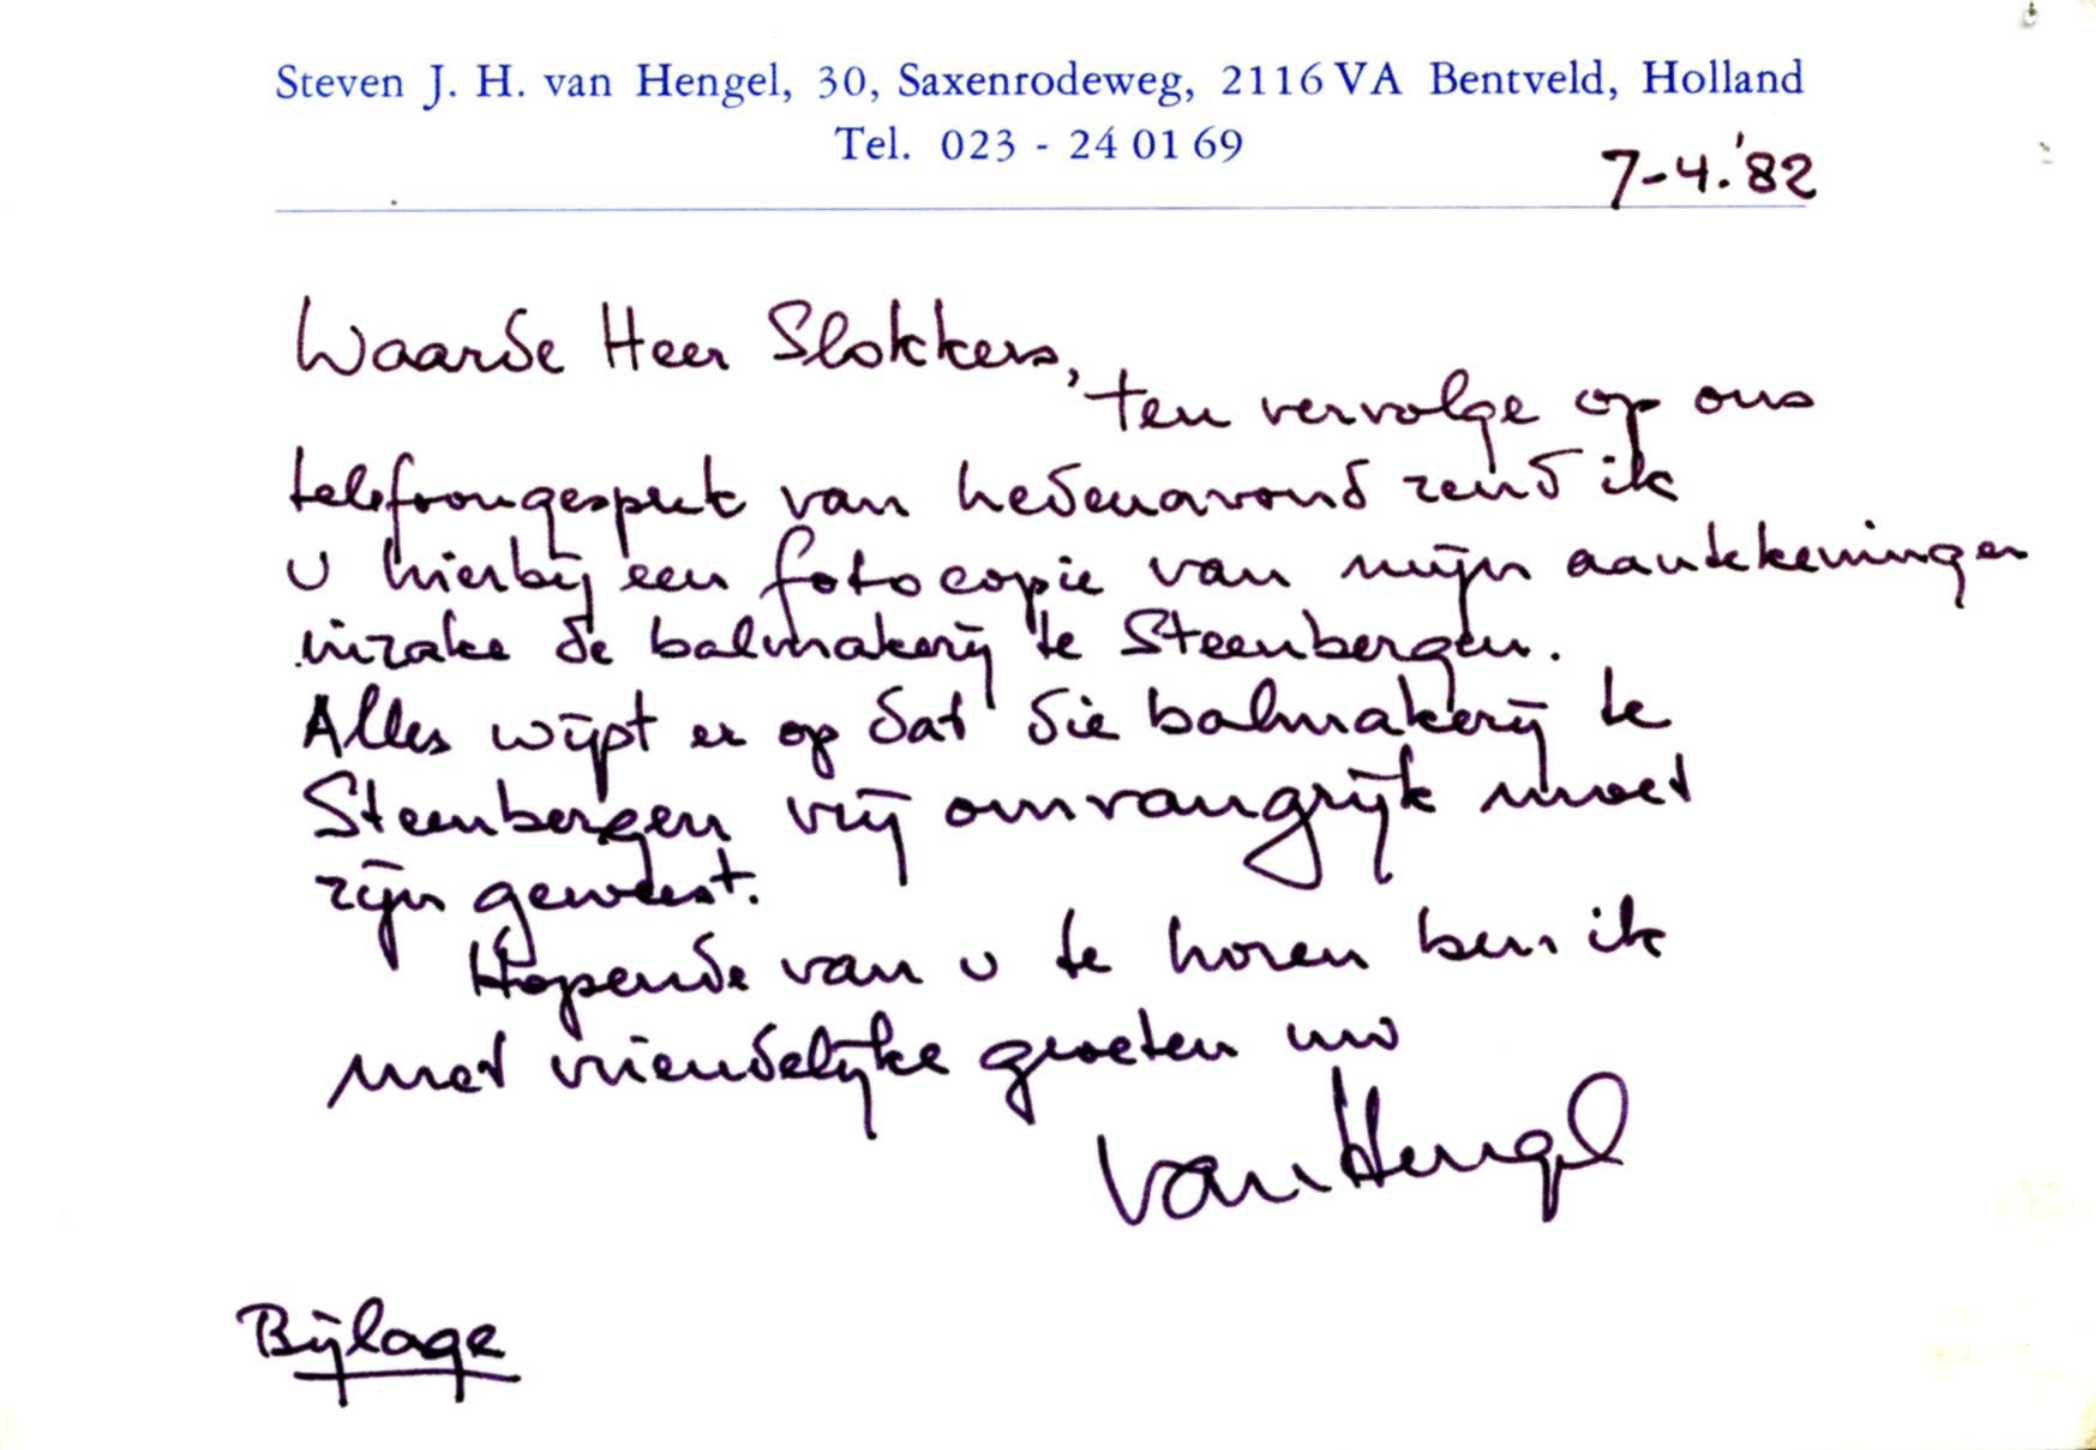 Steven J. H. van Hengel, 30, Saxenrodeweg, 2116 VA Bentveld, Holland
Tel. 023 - 24 01 69
7-4.'82
Waarde Heer Slokkers,
ten vervolge op ons
telefoongesprek van hedenavond zend ik
U hierbij een fotocopie van mijn aantekeningen
inzake de balmakerij te Steenbergen.
Alles wijst er op dat die balmakerij te
Steenbergen vrij omvangrijk moet
zijn geweest.
Hopende van u te horen ben ik
met vriendelijke groeten uw
van Hengel
Bijlage